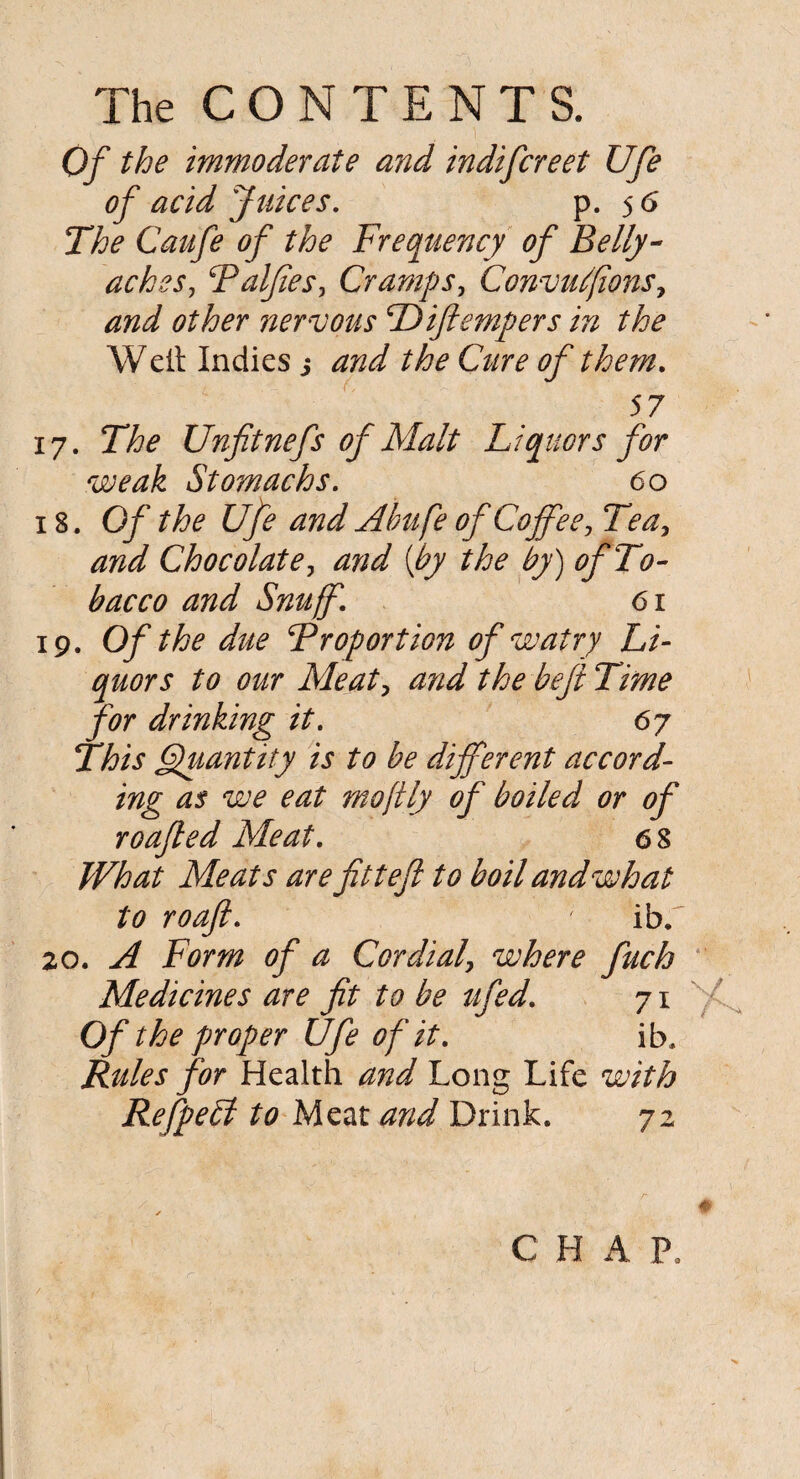 The CONTENTS.
Of the immoderate and indiſcreet Uſe
of acid Juices. p. 56
The Cauſe of the Frequency of Belly-
aches, Palſies, Cramps, Convulſions,
and other nervous Diſtempers in the
Weſt Indies; and the Cure of them.
57
17. The Unfitneſs of Malt Liquors for
weak Stomachs. 60
18. Of the Uſe and Abuſe of Coffee, Tea,
and Chocolate, and (by the by) of To-
bacco and Snuff. 61
19. Of the due Proportion of watry Li-
quors to our Meat, and the beſt Time
for drinking it. 67
This Quantity is to be different accord-
ing as we eat moſtly of boiled or of
roaſted Meat. 68
What Meats are fitteſt to boil and what
to roaſt. ib.
20. A Form of a Cordial, where ſuch
Medicines are fit to be uſed. 71
Of the proper Uſe of it. ib.
Rules for Health and Long Life with
Reſpect to Meat and Drink. 72
CHAP.